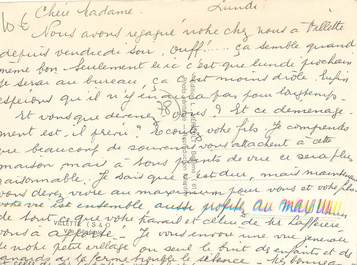 10 €
Chère Madame. Lundi
Nous avons regagné notre chez nous à Villette
depuis vendredi soir. Ouff!... ça semble quand
même bon. Seulement le ic c'est que lundi prochain
je serai au bureau, ça c'est moins drôle, enfin
espérons qu'il n'y en aura pas pour longtemps.
Et vous que devenez vous? Et ce déménage-
ment est, il prévu? Ecoutez votre fils. Je comprends
que beaucoup de souvenirs vous attachent à cette
maison mais à tous points de vue ce sera plus
raisonnable. Je sais que c'est dur, mais maintenant
vous devez vivre au maximum pour vous et votre fils
votre vie est ensemble aussi profitez au maximum
de tout, que votre travail et celui de M.
vous a apporté! Je vous envoie une vue générale
de notre petit village où seul le bruit des enfants et des
canards de la ferme trouble le silence